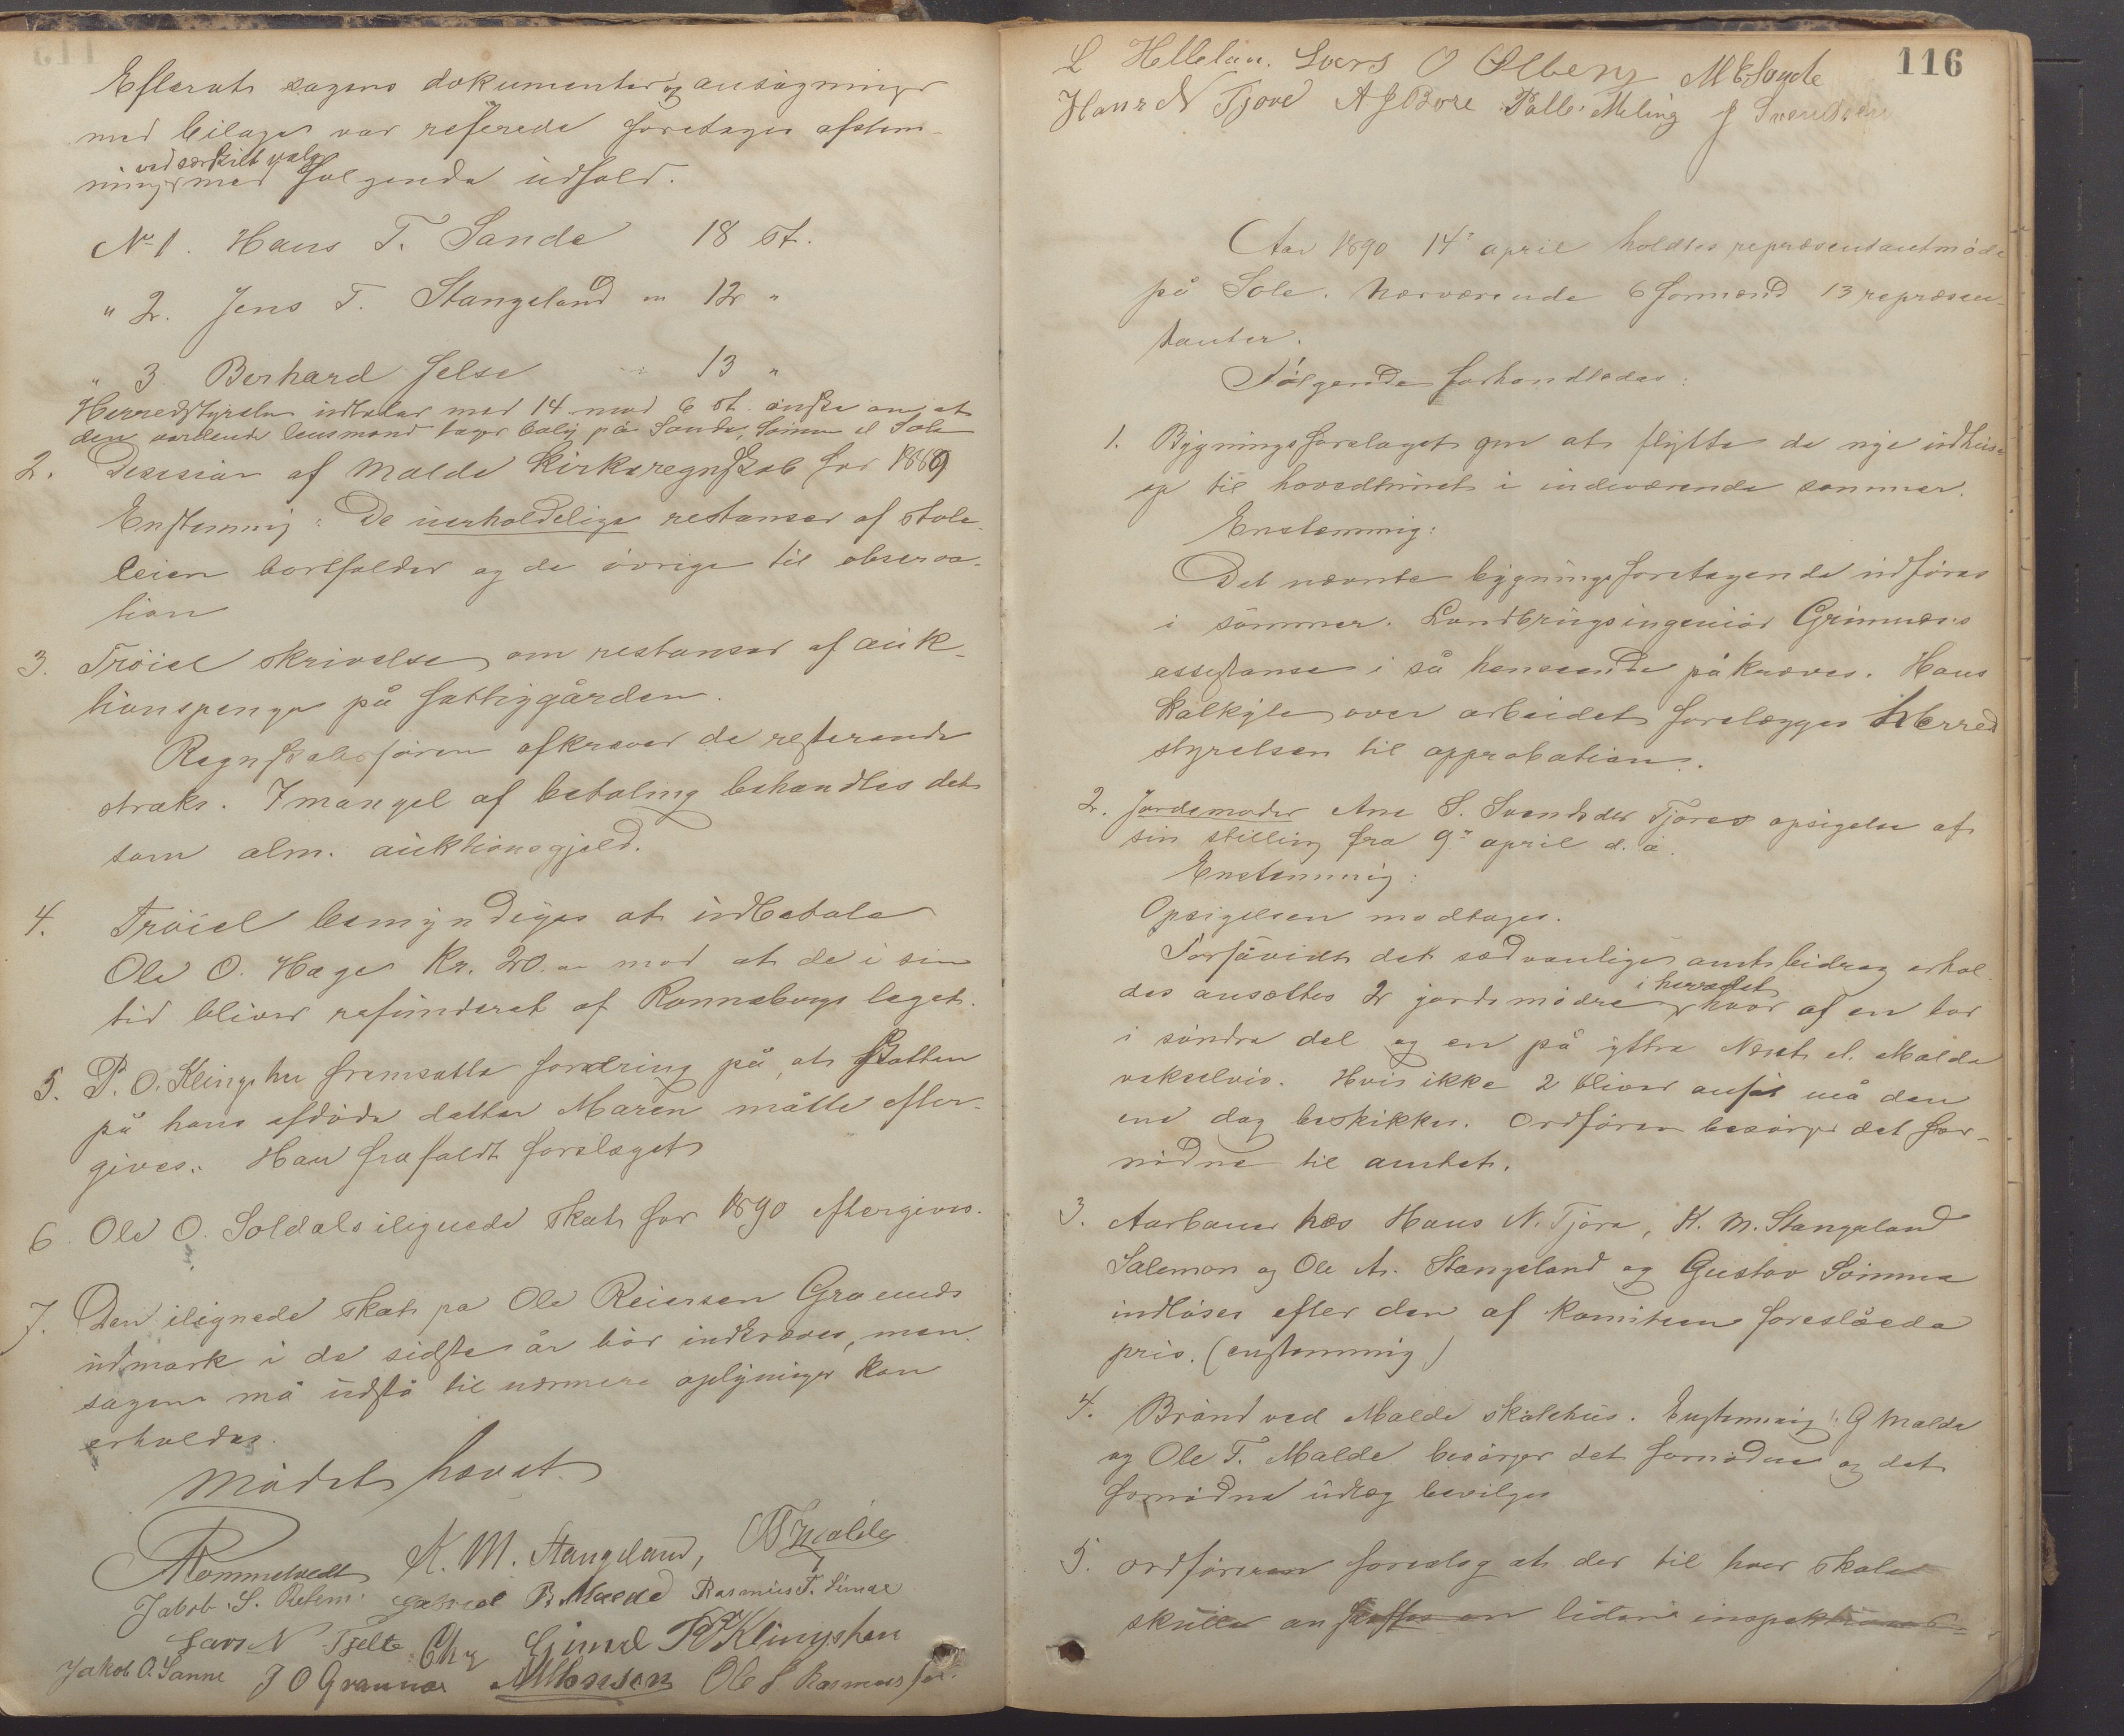 Efterat sagens dokumenter og ansøgninger
med bilager var referede foretages afstem-
ninger med følgende udfald.
ved særskilt valg
No 1. Hans T. Sande 18 st.
" 2. Jens T. Stangeland " 12 "
" 3 Berhard Jelse 13 "
Herredstyrelsen udtaler med 14 mod 6 st. ønske om, at
den vordende lensmand tager bolig på Sande, Sømme el Sola
2. Desision af Malde Kirkeregnskab for 1889
Enstemmig: De uerholdelige restanser af stole-
leien bortfalder og de øvrige til observa-
tion
3. Trøiel skrivelse om restanser af auk-
tionspenge på fattiggården.
Regnskabsføren afkræver de resterende
straks. I mangel af betaling behandles det
som alm. auktionsgjeld.
4. Trøiel bemyndiges at udbetale
Ole O. Hage Kr. 20.00 mod at de i sin
tid bliver refunderet af Rennebergs laget.
5. P. O. Klingshei fremsatte fordring på, at skatten
på hans afdøde datter Maren måtte efter-
gives. Han frafaldt forslaget
6. Ole O. Soldals ilignede skat for 1890 eftergives.
7. Den ilignede skat på Ole Reiersen Grannes
udmark i de sidste år bør indkræves, men
sagen må udstå til nærmere oplysninger kan
erholdes.
Mødet hævet
Rommetvedt K. M. Stangeland, Malde
Jakob S. Gabriel B. Malde Rasmus T.
Lars N Tjelte Chr P O Klingshei
Jakob O. Sanne J O Grannes Ole
116
L Hellelan. Svers O Ølberg M E Sande
Hans N Tjore A J Bore Palle Meling J Svendsen
Aar 1890 14de april holdtes repræsentantmøde
på Sole. Nærværende 6 formænd 13 repræsen-
tanter.
Følgende forhandledes:
1. Bygningsforslaget om at flytte de nye udhuse
op til hovedtunet i indeværende sommer.
Enstemmig:
Det nævnte bygningsforetagende udføres
i sommer. Landbrugsingeniør Grimnæs's
assistanse i så henseende påkræves. Hans
kalkyle over arbeidet forelægges Herred
styrelsen til approbation.
2. Jordemoder Ane S. Svendsdtr Tjores opsigelse af
sin stilling fra 9de april d. å.
Enstemmig:
Opsigelsen modtages.
Forsåvidt det sædvanlige amtsbidrag erhol-
des ansættes 2 jordemødre i herredet hvor af en bor
i søndre del og en på yttre Næset el. Malde
vekselvis. Hvis ikke 2 bliver ansat må den
ene dog beskikkes. Ordføren besørger det for-
nødne til amtet.
3. Aarbauer hos Hans N. Tjora, K. M. Stangeland
Salemon og Ole A. Stangeland og Gustav Sømme
indløses efter den af komiteen foreslåede
pris. (enstemmig)
4. Brønd ved Malde skolehus. Enstemmig: G Malde
og Ole T. Malde besørger det fornødne og det
fornødne udlæg bevilges
5. Ordføreren foreslog at der til hver skole
skulle anskaffes en liden inspektions